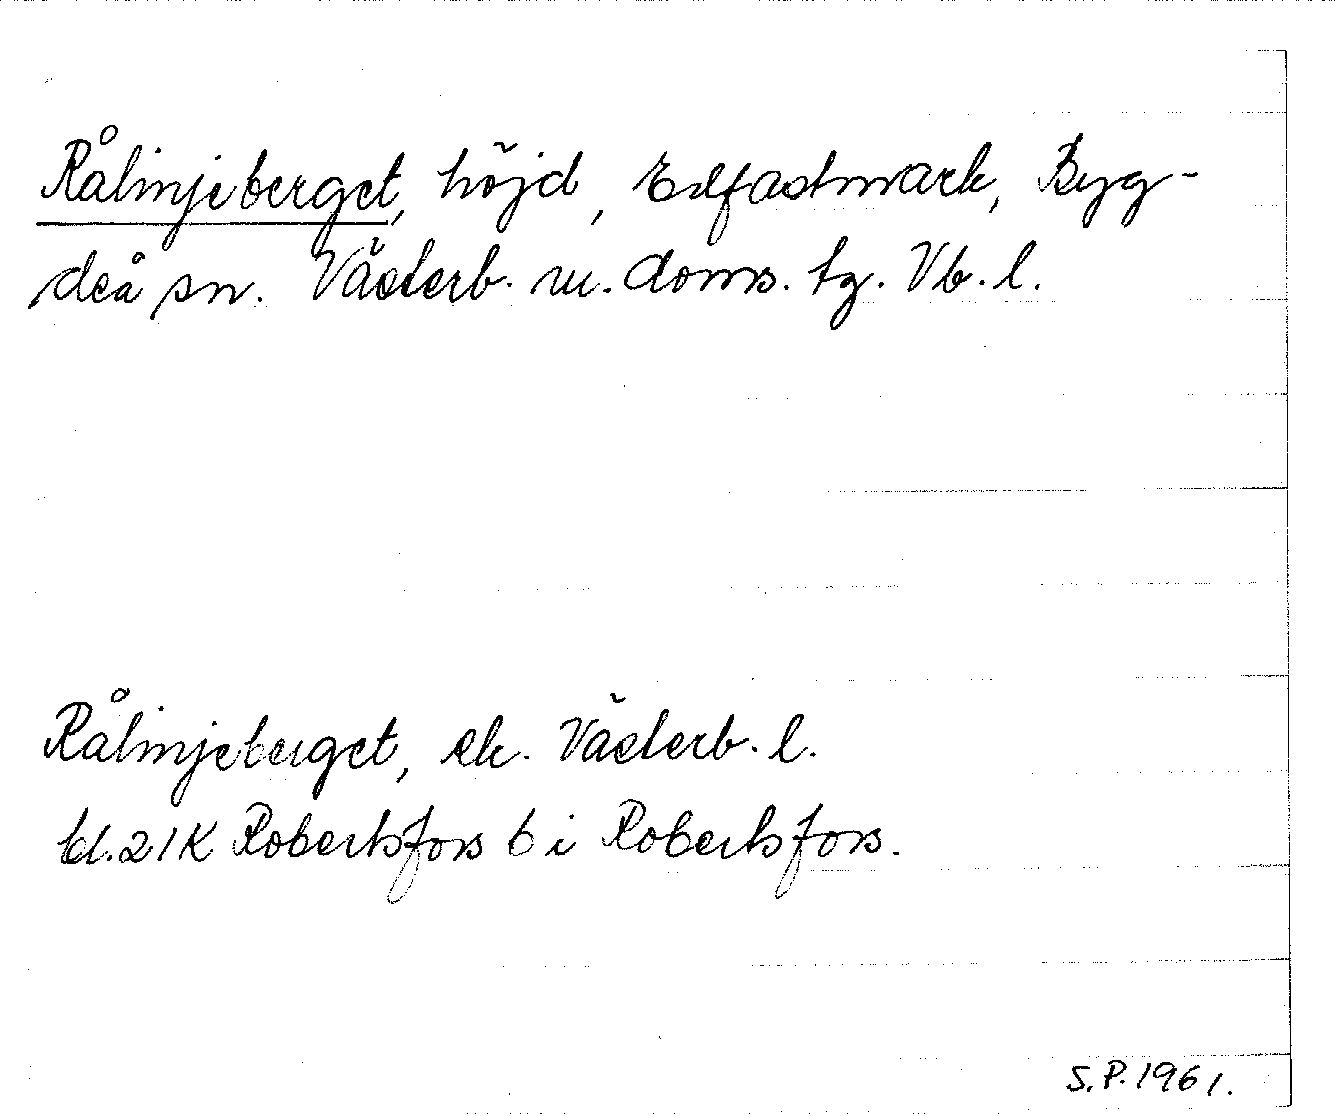 Rålinjeberget, höjd, Edfastmark, Byg-
deå sn. Västerb. m. doms. tg. Vb. l.
Rålinjeberget, ek. Västerb. l.
bl. 21K Robertsfors b i Robertsfors.
S.P. 1961.